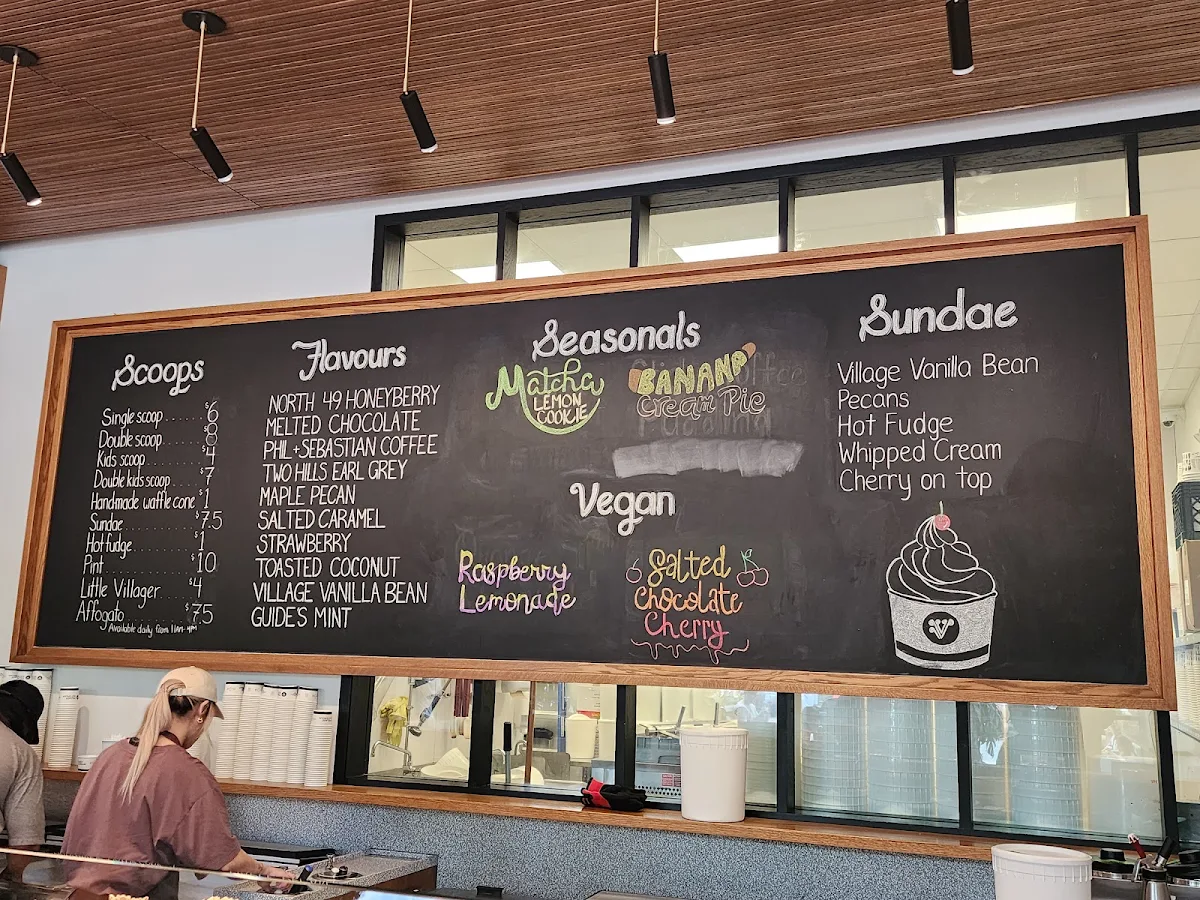 Scoops
Single scoop ....... $6
Double scoop ....... $8
Kids scoop .......... $4
Double kids scoop .... $7
Handmade waffle cone $1
Sundae ............ $7.5
Hot fudge .......... $1
Pint ............... $10
Little Villager ...... $4
Affogato .......... $7.5
Available daily from 11AM-4PM
Flavours
NORTH 49 HONEYBERRY
MELTED CHOCOLATE
PHIL+SEBASTIAN COFFEE
TWO HILLS EARL GREY
MAPLE PECAN
SALTED CARAMEL
STRAWBERRY
TOASTED COCONUT
VILLAGE VANILLA BEAN
GUIDES MINT
Seasonals
Matcha
LEMON
COOKIE
BANANA
Cream Pie
Vegan
Raspberry
Lemonade
Salted
Chocolate
Cherry
Sundae
Village Vanilla Bean
Pecans
Hot Fudge
Whipped Cream
Cherry on top
V